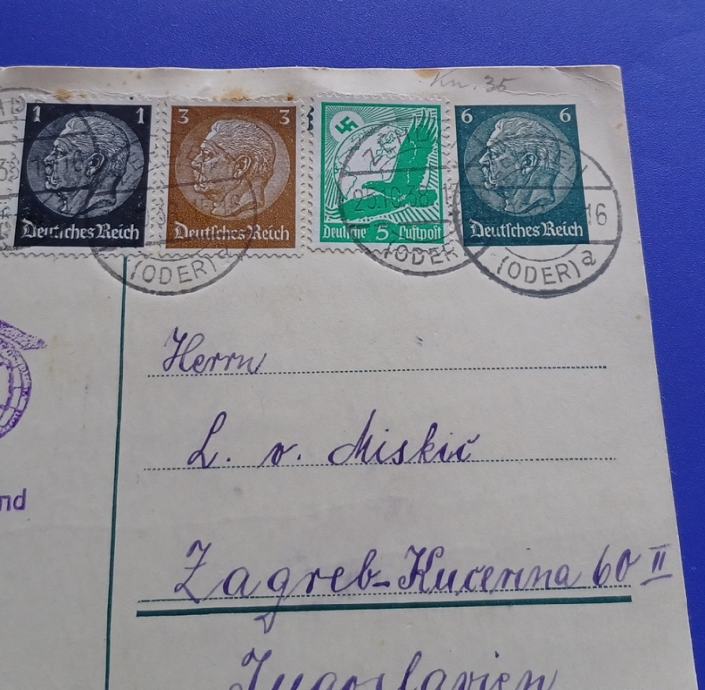 Kn. 35
1 1
Deutsches Reich
3 3
Deutsches Reich
Deutsche 5 Luftpost
6 6
Deutsches Reich
(ODER) a
(ODER)
(ODER) a
16
Herrn
L. v. Miskić
Zagreb-Kucerina 60 II
Jugoslavien
nd